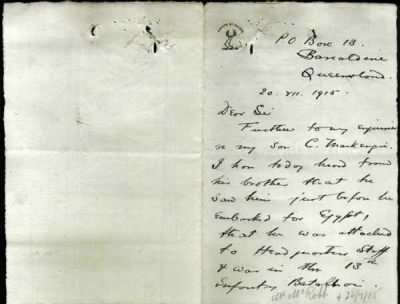 P O Box 13.
Barcaldine
Queensland.
20. VII. 1915.
Dear Sir
Further to my enquiries
re my son C. Mackenzie.
I have today heard from
his brother that he
saw him just before he
embarked for Egypt,
that he was attached
to Headquarters Staff
& was in the 13th
Infantry Battalion.
26/7/15